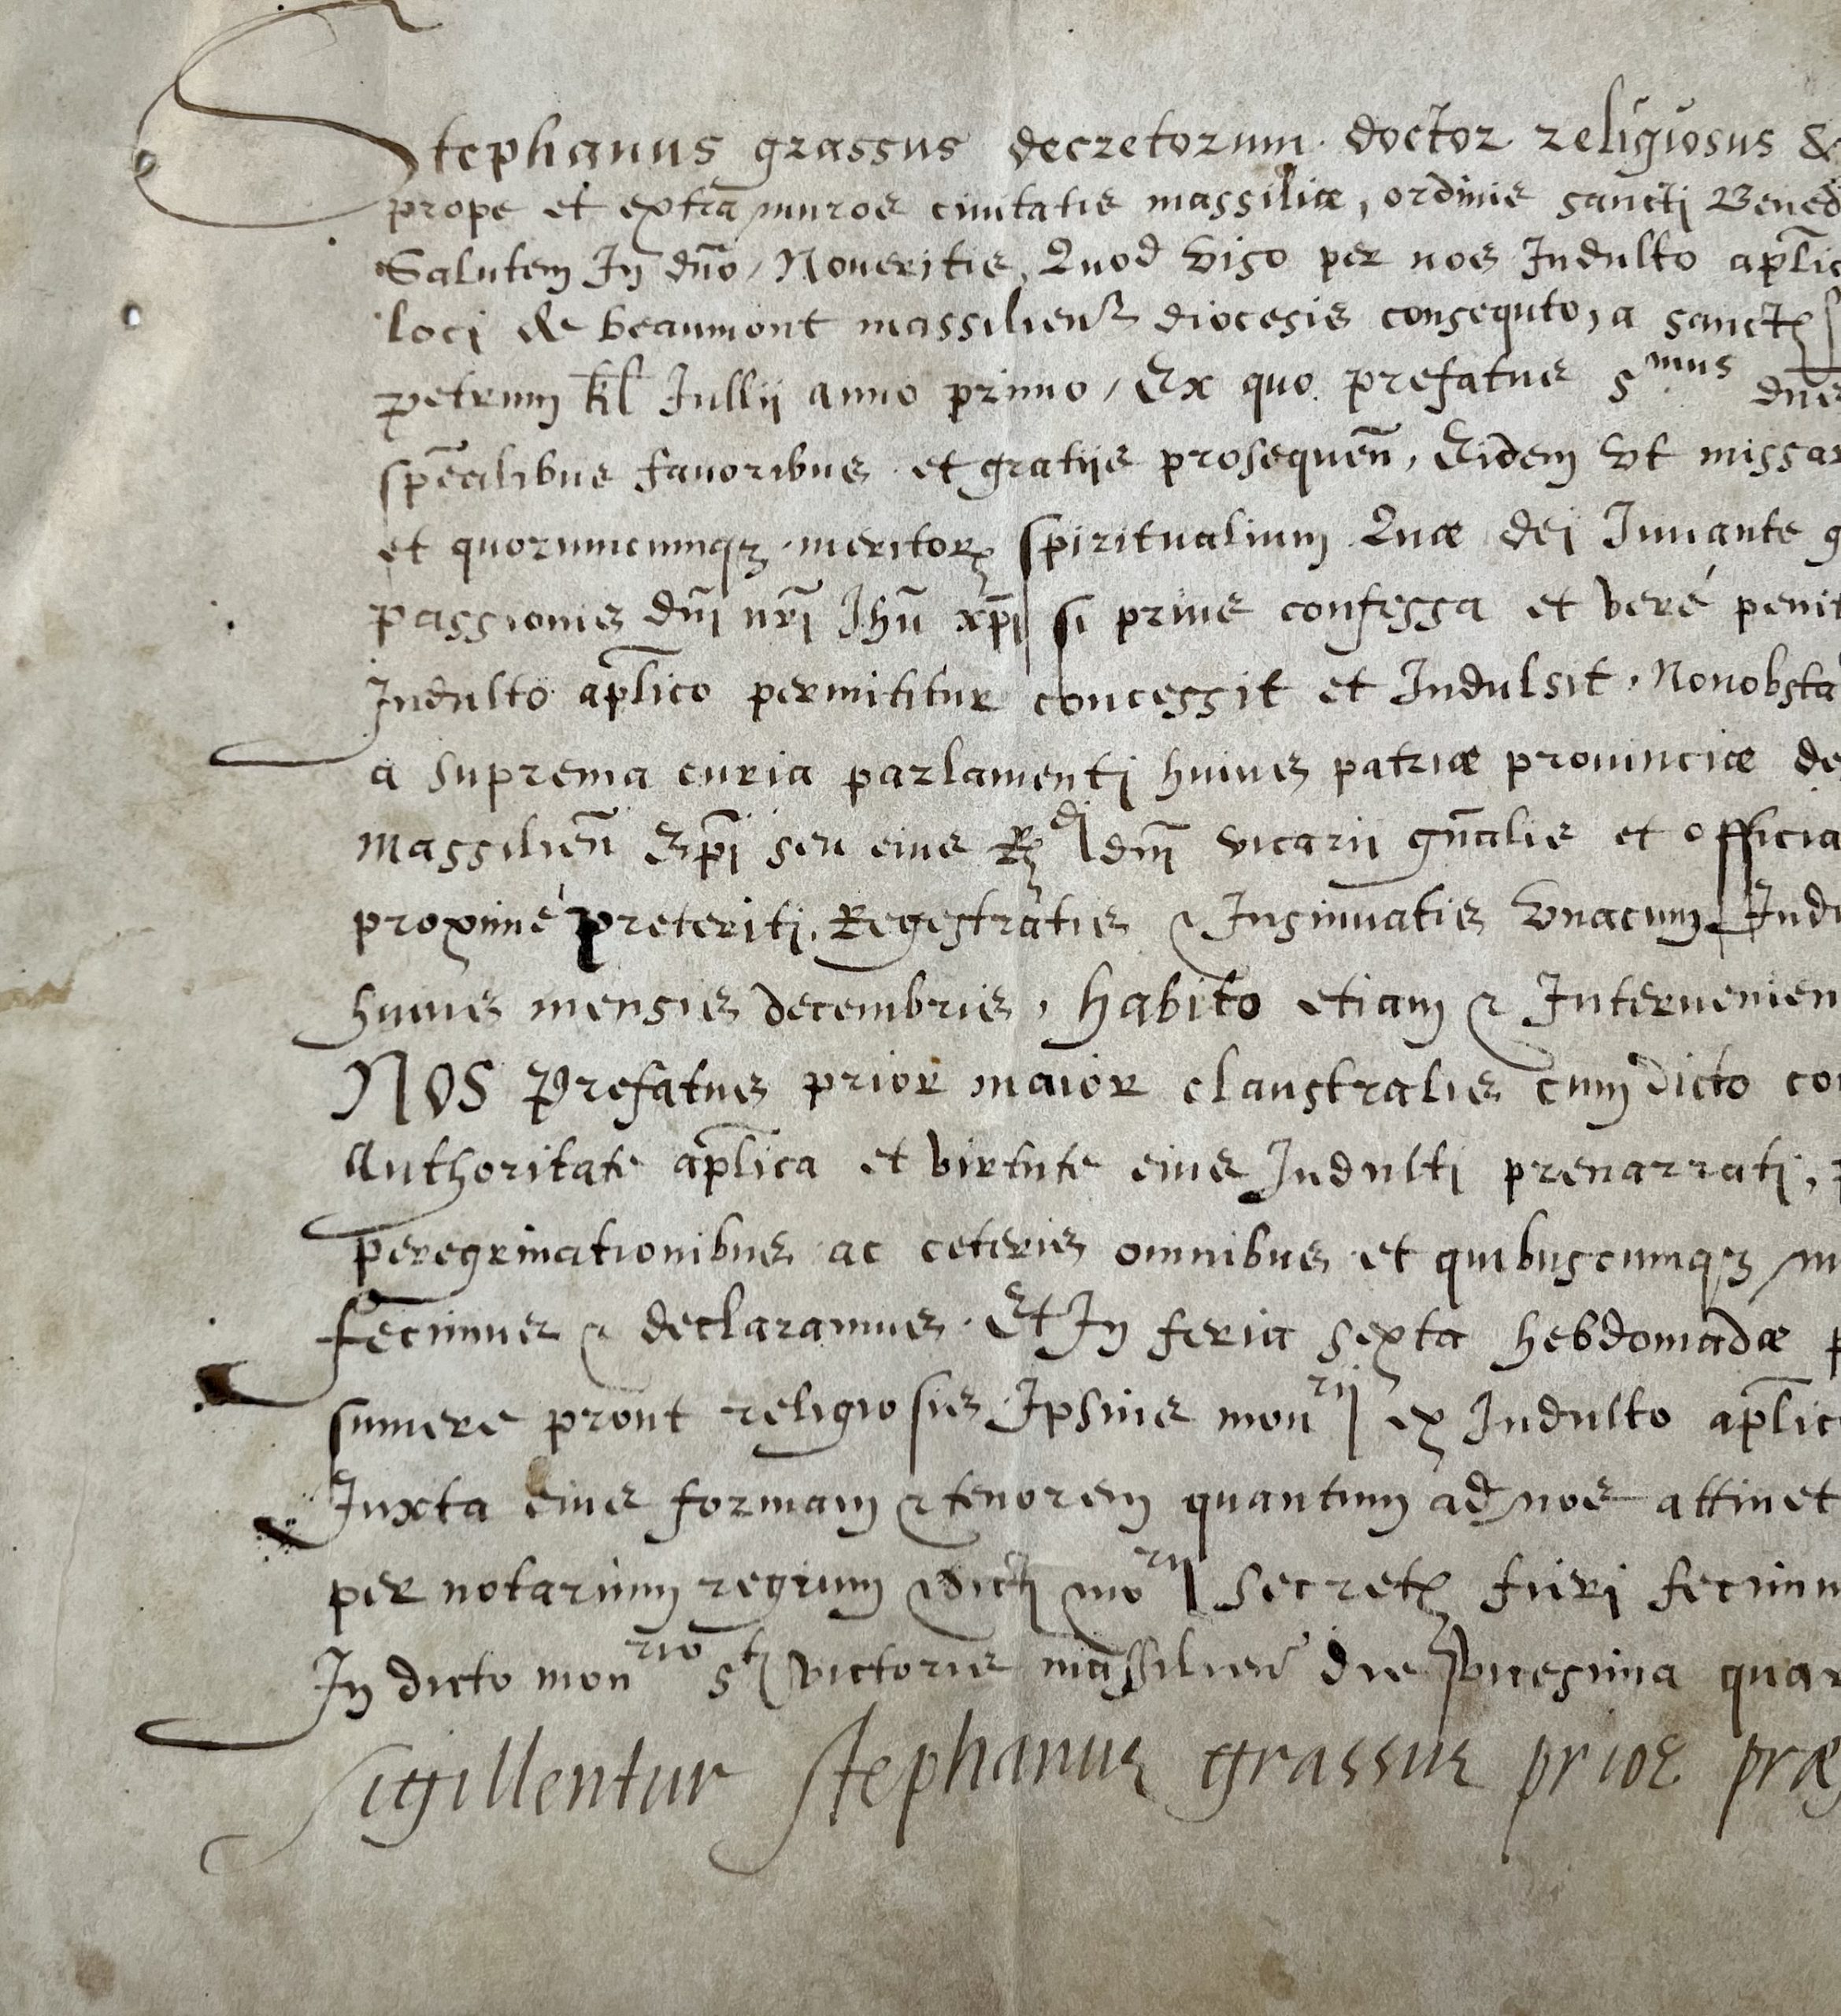 Stephanus grassus decretorum doctor religiosus &
prope et extra muros civitatis massiliæ, ordinis sancti Bened
Salutem In dño, Noveritis, Quod viso per nos Indulto aplic
loci de beaumont massilieñ diocesis consequto, a sanct
petrum kl Jullii anno primo, Ex quo prefatus s^mus dñs
spēalibus favoribus et gratiis prosequeñ, Eidem vt missar
et quorumcumqz meritorꝝ spiritualium Quæ dei Iuuante g
passionis dñi nr̃i Jhũ xp̃i si prius confessa et veré penit
Indulto ap̃lico permititur concessit et Indulsit, Nonobsta
a suprema curia parlamenti huius patriæ provinciæ de
massilieñ Ep̃i seu eius R^di dñi vicarii gñalis et officia
proximé preteriti, Regestratis & Insinuatis vnacum Indu
huius mensis decembris, habito etiam & Intervenien
NOS prefatus prior maior claustralis cum dicto co
Authoritate ap̃lica et virtute eius Indulti prenarrati,
peregrinationibus ac ceteris omnibus et quibuscumqz m
fecimus & declaramus. Et In feria sexta hebdomadæ p
sumere prout religiosis Ipsius mon^rij ex Indulto ap̃lic
Juxta eius formam & tenorem quantum ad nos attinet
per notarium regium & dicti mo^rij secret fieri fecimu
In dicto mon^rio s^ti victoris massilieñ die vicesima quar
Sigillentur stephanus grassus prior præ